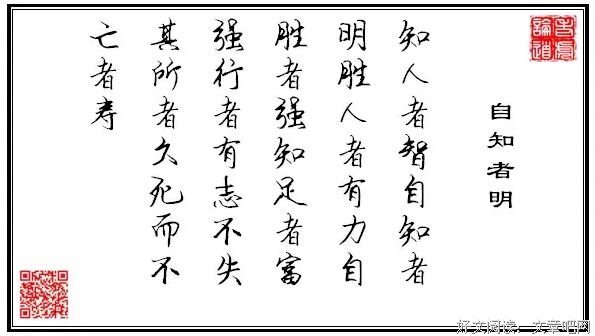 自知者明
知人者智自知者
明胜人者有力自
胜者强知足者富
强行者有志不失
其所者久死而不
亡者寿
好文阅读：文章吧网